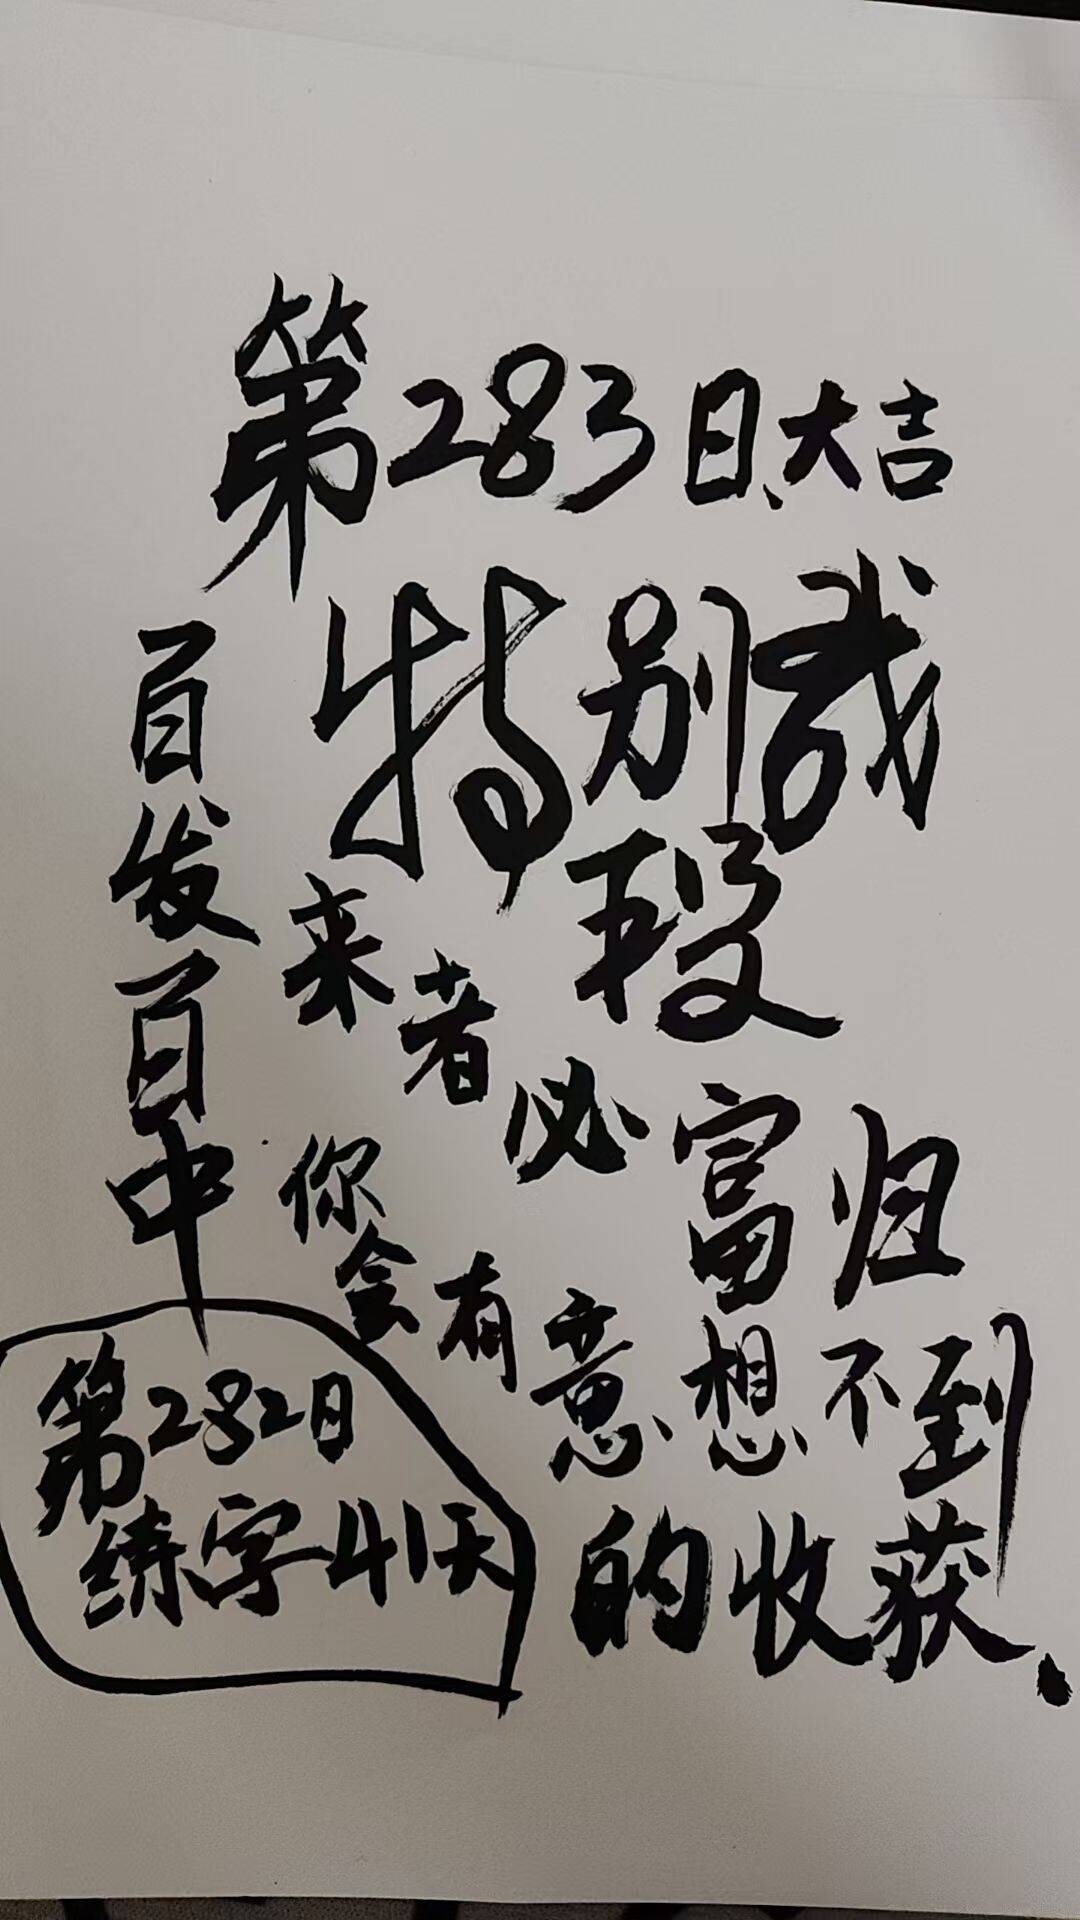 第283日、大吉
特别
来者必富归
你会有意想不到
的收获.
百发百中
第282日
练字41天